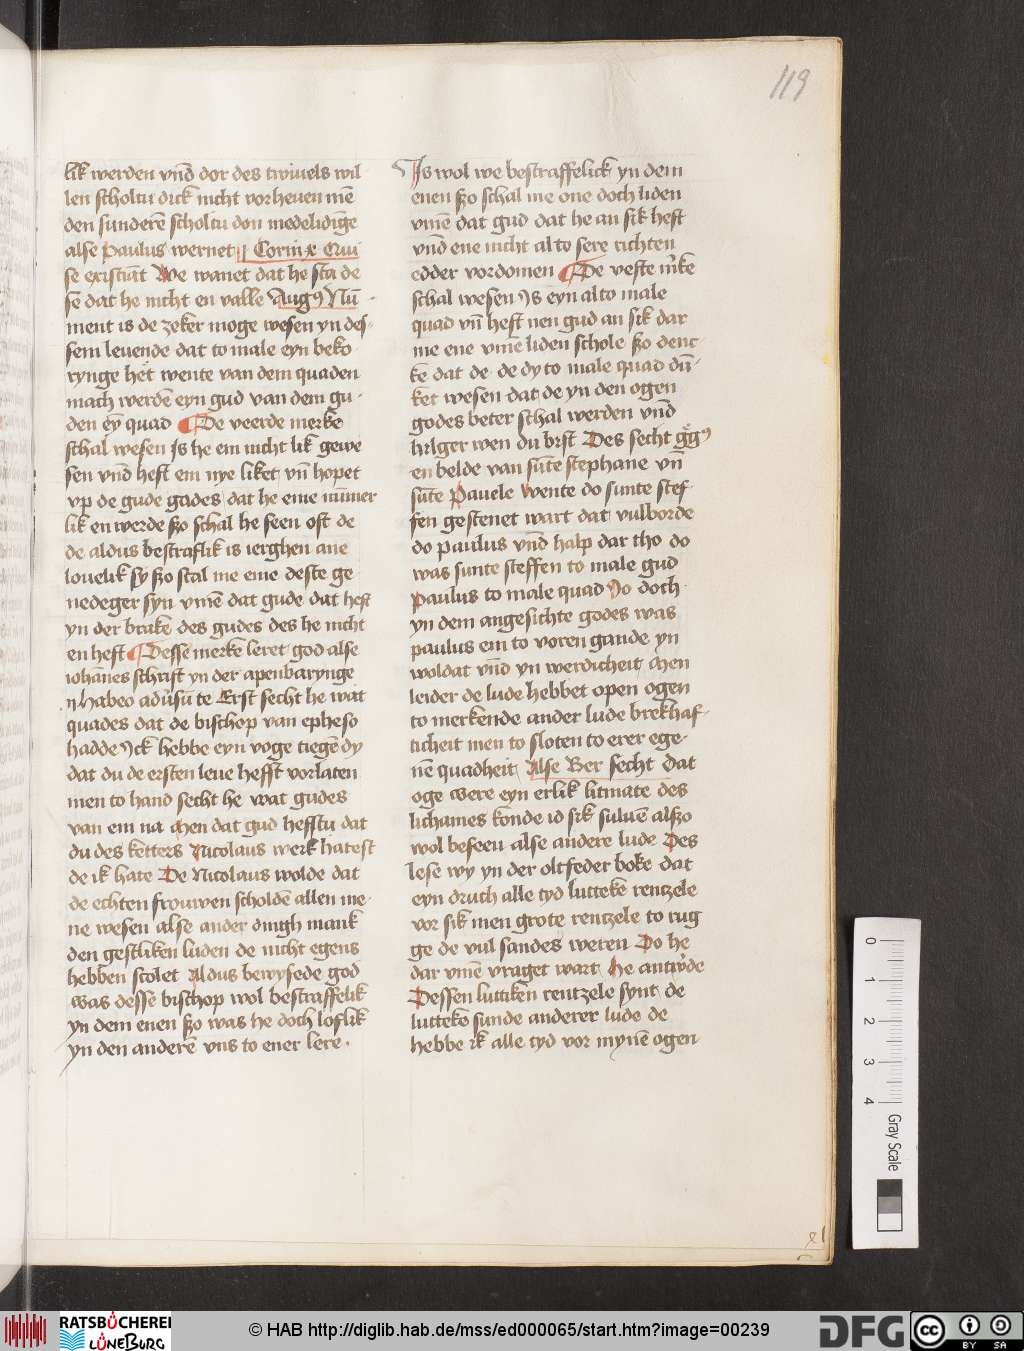 119
lik werden vnd dor des twiuels wil-
len scholtu dick nicht vorheuen mē
den sunderē scholtu don medelidīge
alse paulus wernet j Corin x Qui
se existīat We wanet dat he sta de
sē dat he nicht en valle Augꝰ Nū-
ment is de zeker moge wesen yn des-
sem leuende dat to male eyn beko-
rynge het wente van dem quaden
mach werdē eyn gud van dem gu-
den eȳ quad De veerde merke
schal wesen Is he em nicht lik gewe
sen vnd heft em nye liket vn̄ hopet
vp de gude gades dat he eme nūmer
lik en werde szo schal he seen oft de
de aldus bestraflik is ierghen ane
louelik sy szo scal me eme deste ge-
nedeger syn vmē dat gude dat heft
yn der brake des gudes des he nicht
en heft Desse merke leret god alse
iohānes schrift yn der apenbarynge
Habeo adūsū te Erst secht he wat
quades dat de bischop van epheso
hadde Ick hebbe eyn voge tiegē dy
dat du de ersten leue hefft vorlaten
men to hand secht he wat gudes
van em na Men dat gud hefftu dat
du des ketters Nicolaus werk hatest
de ik hate De Nicolaus wolde dat
de echten frouwen scholdē allen me-
ne wesen alse ander dingh mank
den gestliken luden de nicht egens
hebben scolet Aldus bewysede god
was dessē bischop wol bestraffelik
yn dem enen szo was he doch loflik
yn den anderē vns to ener lere.
Is wol we bestraffelick yn dem
enen szo schal me one doch liden
vmē dat gud dat he an sik heft
vnd ene nicht al to sere richten
edder vordomen De vefte mke
schal wesen Is eyn al to male
quad vn̄ heft nen gud an sik dar
me ene vmē liden schole szo denc-
ke dat de de dy to male quad dū-
ket wesen dat de yn den ogen
godes beter schal werden vnd
hilger wen du bist Des secht ggꝰ
en belde van sūte stephane vn̄
sūte Pauele Wente do sunte stef-
fen gestenet wart dat vulborde
do paulus vnd halp dar tho do
was sunte steffen to male gud
Paulus to male quad No doch
yn dem angesichte godes was
paulus em to voren gande yn
woldat vnd yn werdicheit Men
leider de lude hebbet open ogen
to merkende ander lude brekhaf-
ticheit men to sloten to erer ege-
nē quadheit Alse Ber secht dat
oge were eyn erlik litmate des
lichames konde id sik suluē alszo
wol beseen alse andere lude Des
lese wy yn der oltfeder boke dat
eyn druch alle tyd lutteke rentzele
vor sik men grote rentzele to rug
ge de vul sandes weren Do he
dar vmē vraget wart He antwde
Dessen luttiken rentzele synt de
lutteke sunde anderer lude de
hebbe ik alle tyd vor mynē ogen
0 1 2 3 4
Gray Scale
RATSBÜCHEREI
LÜNEBURG
© HAB http://diglib.hab.de/mss/ed000065/start.htm?image=00239
DFG
cc BY SA